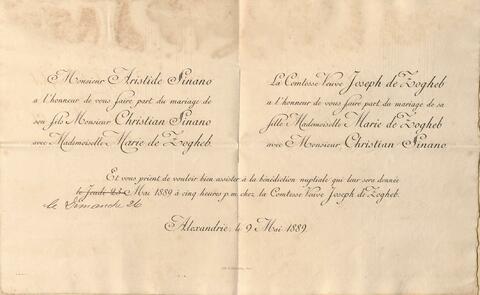 Monsieur Aristide Sinano
a l'honneur de vous faire part du mariage de
son fils Monsieur Christian Sinano
avec Mademoiselle Marie de Zogheb.
La Comtesse Veuve Joseph de Zogheb
a l'honneur de vous faire part du mariage de sa
fille Mademoiselle Marie de Zogheb
avec Monsieur Christian Sinano.
Et vous prient de vouloir bien assister à la bénédiction nuptiale qui leur sera donnée
le Jeudi 23 Mai 1889 à cinq heures p.m. chez la Comtesse Veuve Joseph de Zogheb.
le Dimanche 26
Alexandrie, le 9 Mai 1889.